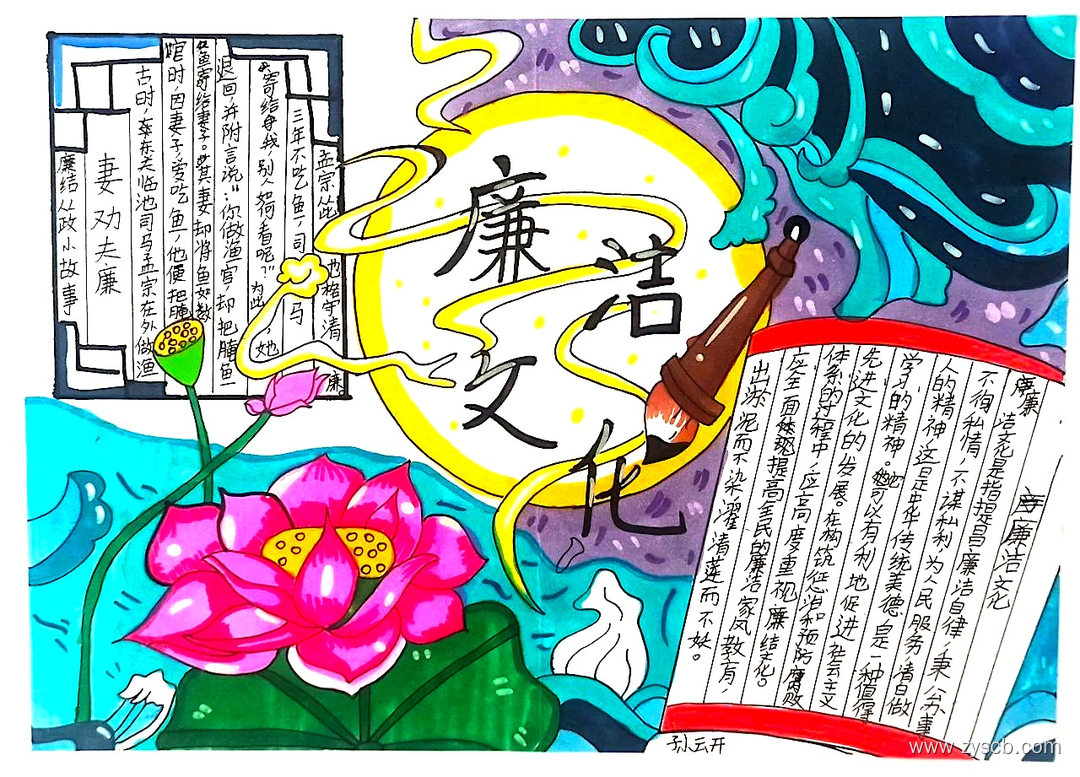 廉结从政小故事
妻劝夫廉
古时，东关临池司马孟宗在外做渔
官时，因妻子，爱吃鱼，他便把腌
鱼寄给妻子。其妻却将鱼如数
退回，并附言说：“你做渔官，却把腌鱼
寄给我，别人如何看呢？”为此，她
三年不吃鱼，司马
孟宗此也格守清廉
廉洁文化
廉洁文化
洁文是指提昌廉洁自律，秉公办事
不徇私情，不谋私利，为人民服务，清白做
人的精神，这是中华传统美德，是一种值得
学习的精神。她可以有利地促进社会主义
先进文化的发展。在构筑惩治和预防腐败
体系的过程中，应高度重视廉结文化。
应全面体现提高全民的廉洁家风教育，
出淤泥而不染濯清莲而不妖。
孙云开
www.zyscb.com